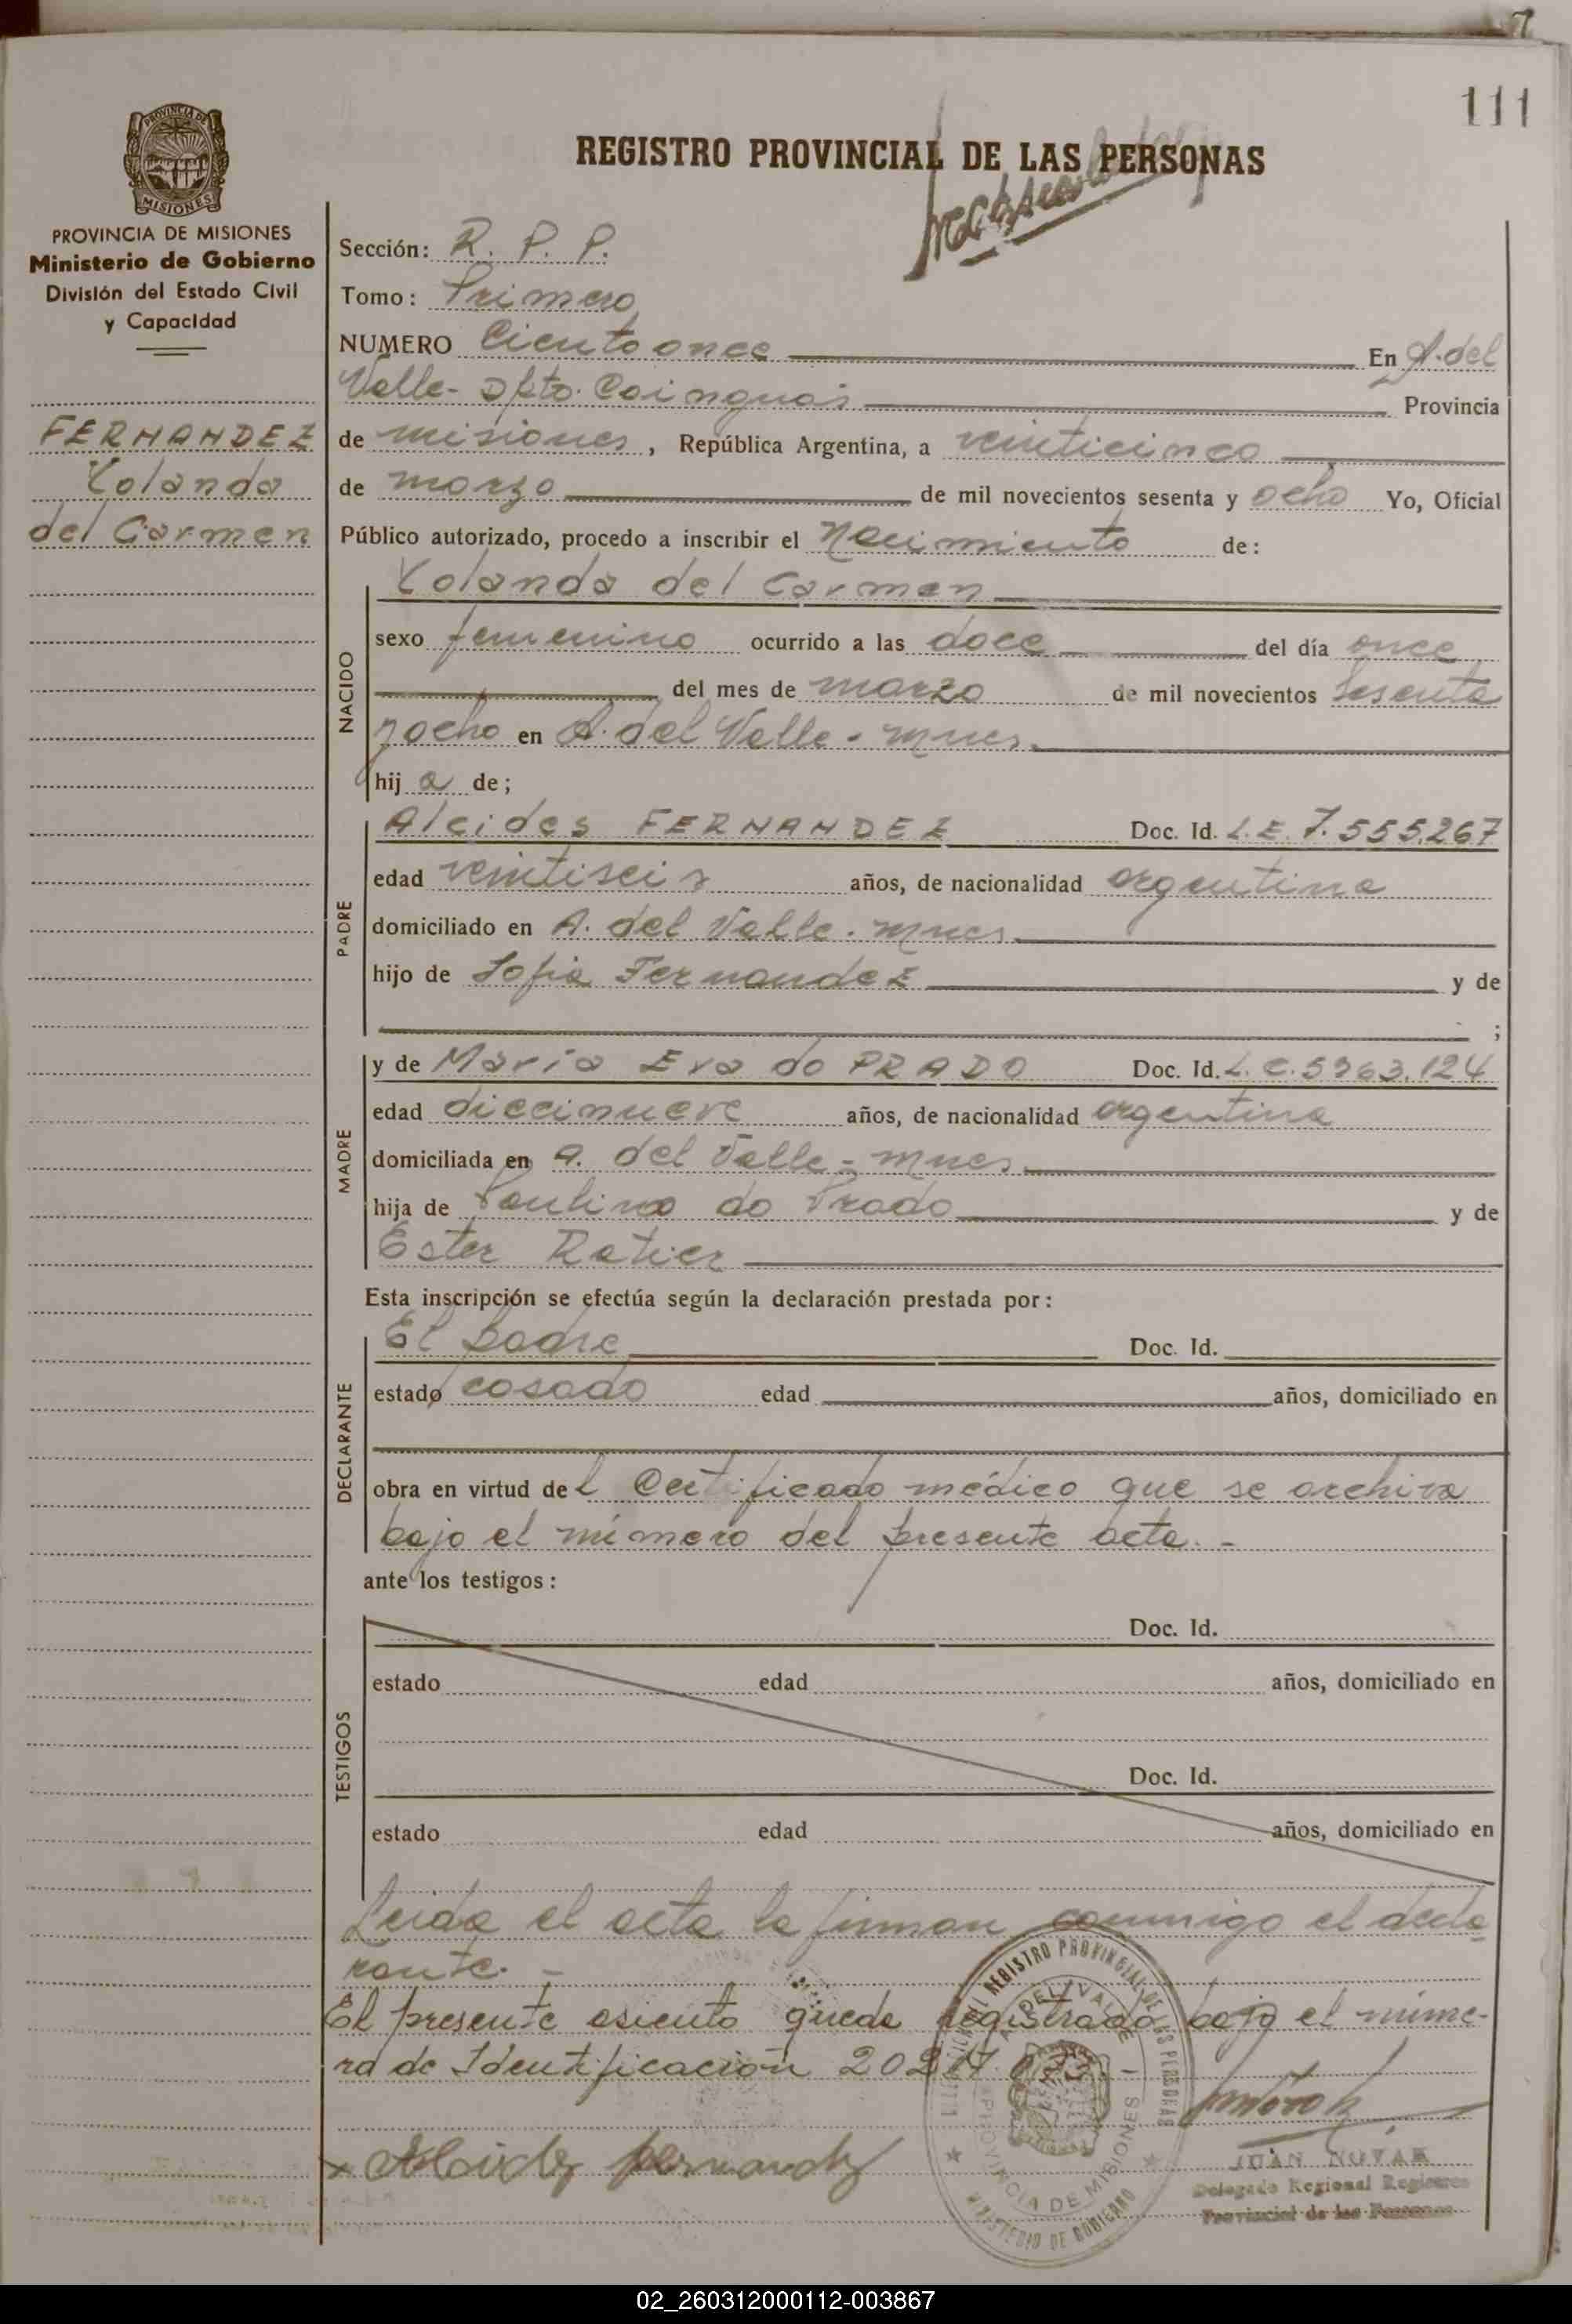 111
PROVINCIA DE
MISIONES
PROVINCIA DE MISIONES
Ministerio de Gobierno
División del Estado Civil
y Capacidad
FERNANDEZ
Yolanda
del Carmen
REGISTRO PROVINCIAL DE LAS PERSONAS
Sección: R. P. P.
Tomo: Primero
NUMERO Ciento once En A. del
Valle - Dpto. Cainguás Provincia
de misiones, República Argentina, a veinticinco
de marzo de mil novecientos sesenta y ocho Yo, Oficial
Público autorizado, procedo a inscribir el Nacimiento de:
Yolanda del Carmen
NACIDO
sexo femenino ocurrido a las doce del día once
del mes de marzo de mil novecientos sesenta
y ocho en A. del Valle - mnes.
hija de;
PADRE
Alcides FERNANDEZ Doc. Id. L.E. 7.555.267
edad veintiseis años, de nacionalidad argentina
domiciliado en A. del Valle - mnes.
hijo de Sofia Fernandez y de
;
MADRE
y de Maria Eva do PRADO Doc. Id. L.C. 5963.124
edad diecinueve años, de nacionalidad argentina
domiciliada en A. del Valle - mnes.
hija de Paulino do Prado y de
Ester Ratier
Esta inscripción se efectúa según la declaración prestada por:
DECLARANTE
El padre Doc. Id.
estado casado edad años, domiciliado en
obra en virtud del Certificado médico que se archiva
bajo el número del presente acta. -
ante los testigos:
TESTIGOS
Doc. Id.
estado edad años, domiciliado en
Doc. Id.
estado edad años, domiciliado en
Leida el acta la firman conmigo el decla
rante. -
El presente asiento queda registrado bajo el núme-
ro de Identificación
REGISTRO PROVINCIAL DE LAS PERSONAS
A. DEL VALLE
PROVINCIA DE MISIONES
MINISTERIO DE GOBIERNO
Alcides Fernandez
JUAN NOVAK
Delegado Regional Registro
Provincial de las Personas
02_260312000112-003867